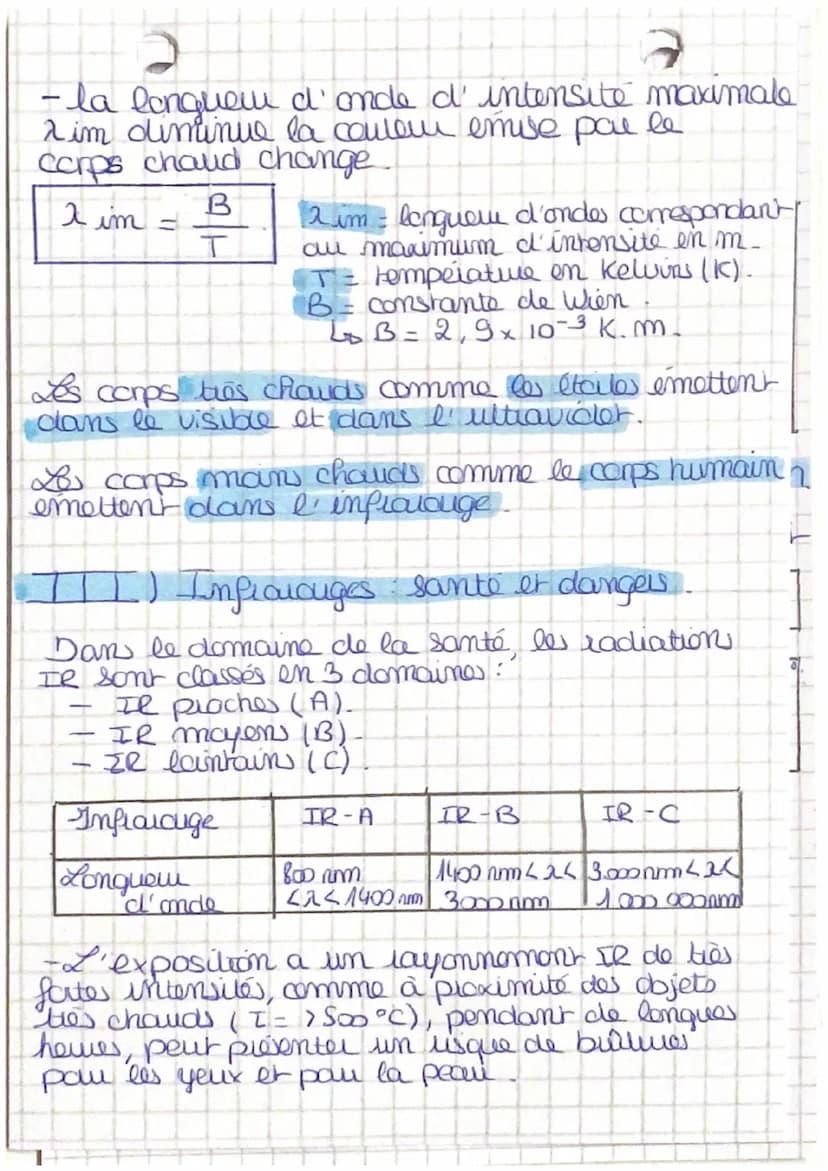 - la longueur d'onde d'intensité maximale
λim diminue la couleur émise par le
corps chaud change.
λim = B/T
λim = longueur d'ondes correspondant
au maximum d'intensité en m.
T = température en Kelvins (K).
B = constante de Wien.
↳ B = 2,9 x 10⁻³ K.m.
Les corps très chauds comme les étoiles émettent
dans le visible et dans l'ultraviolet.
Les corps moins chauds comme le corps humain
émettent dans l'infrarouge.
III) Infrarouges : santé et dangers.
Dans le domaine de la santé, les radiation
IR sont classés en 3 domaines :
- IR proches (A).
- IR moyens (B).
- IR lointains (C).
Infrarouge IR-A IR-B IR-C
Longueur 800 nm 1400 nm < λ < 3.000nm < λ <
d'onde < λ < 1400 nm 3000 nm 1 000 000nm
- L'exposition a un rayonnement IR de très
fortes intensités, comme à proximité des objets
très chauds (I = > 500 °C), pendant de longues
heures, peut présenter un risque de brûlures
pour les yeux et pour la peau.